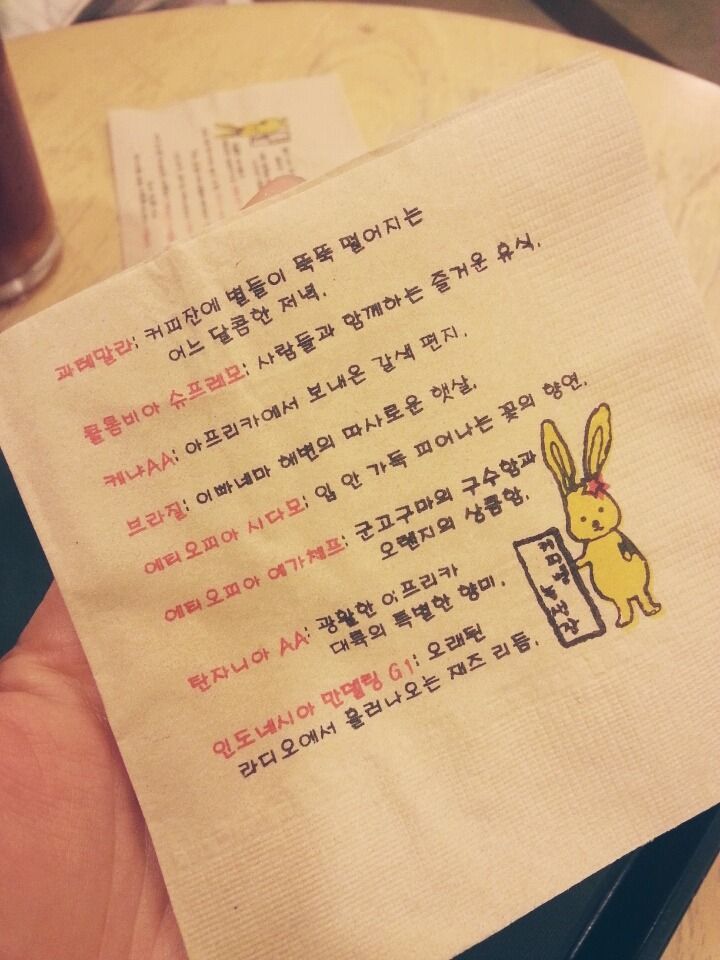 과테말라; 커피잔에 별들이 뚝뚝 떨어지는
어느 달콤한 저녁.
콜롬비아 슈프레모; 사람들과 함께하는 즐거운 휴식.
케냐AA; 아프리카에서 보내온 갈색 편지.
브라질; 이빠네마 해변의 따사로운 햇살.
에티오피아 시다모; 입 안 가득 피어나는 꽃의 향연.
에티오피아 예가체프; 군고구마의 구수함과
오렌지의 상큼함.
탄자니아 AA; 광활한 아프리카
대륙의 특별한 향미.
인도네시아 만델링 G1; 오래된
라디오에서 흘러나오는 재즈 리듬.